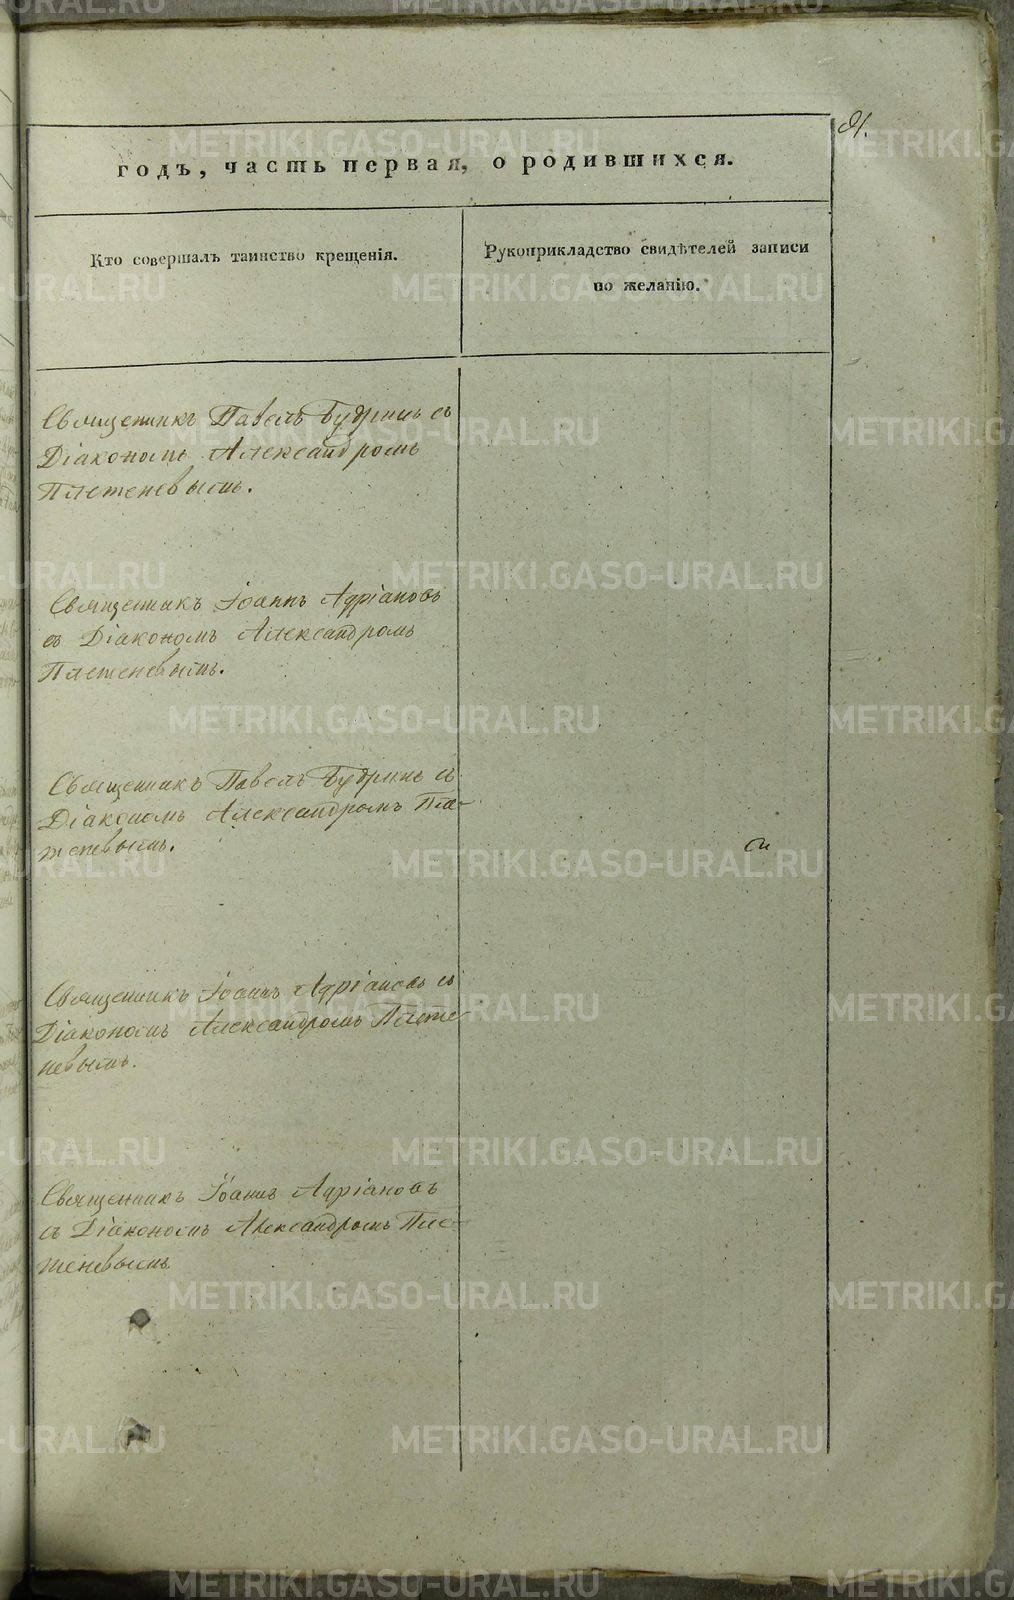 91.
годъ, часть первая, о родившихся.
Кто совершалъ таинство крещенія.
Рукоприкладство свидѣтелей записи
по желанію.
Священникъ Павелъ Будринъ съ
Діакономъ Александромъ
Плетеневымъ.
Священникъ Іоаннъ Адріановъ
съ Діакономъ Александромъ
Плетеневымъ.
Священникъ Павелъ Будринъ съ
Діакономъ Александромъ Пле-
теневымъ.
Священникъ Іоаннъ Адріановъ съ
Діакономъ Александромъ Плете
невымъ.
Священникъ Іоаннъ Адріановъ
съ Діакономъ Александромъ Пле-
теневымъ
METRIKI.GASO-URAL.RU